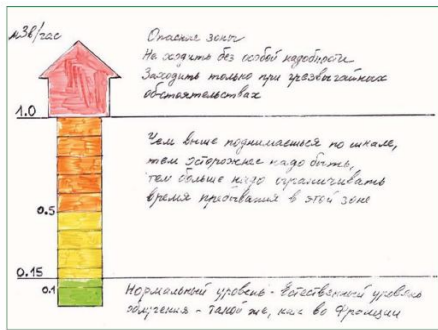 мЗв/час
Опасная зона
Не ходить без особой надобности
Заходить только при чрезвычайных
обстоятельствах
1.0
Чем выше поднимаешься по шкале,
тем осторожнее надо быть,
тем больше надо ограничивать
время пребывания в этой зоне
0.5
0.15
0.1
Нормальный уровень - Естественный уровень
облучения - такой же, как во Франции